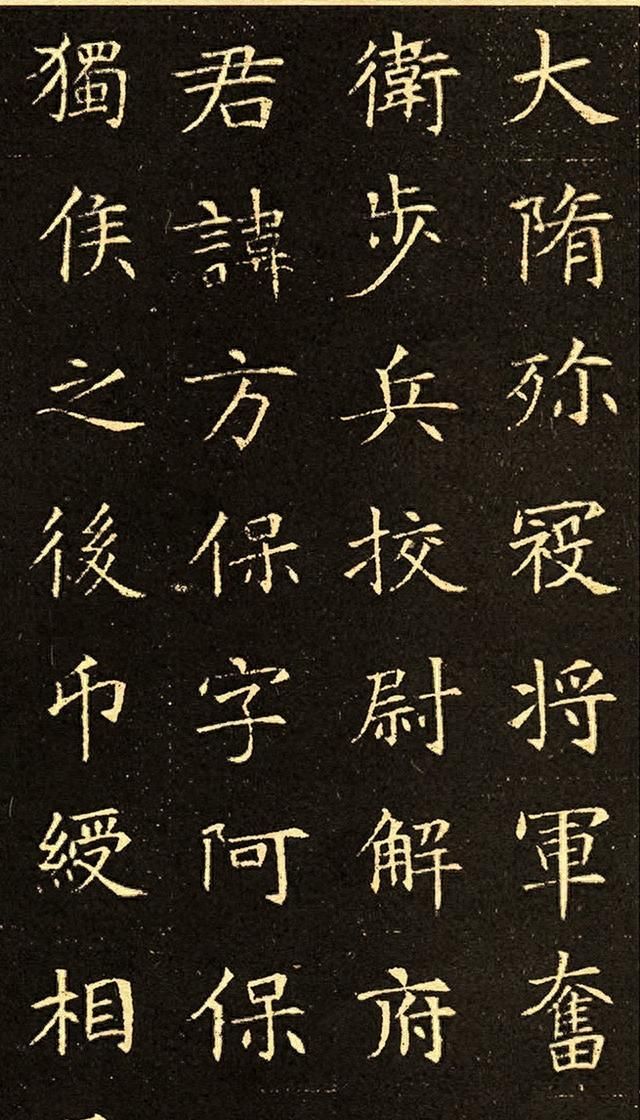 大隋殄冦将軍奮
衛步兵挍尉解府
君諱方保字阿保
獨侯之後币綬相